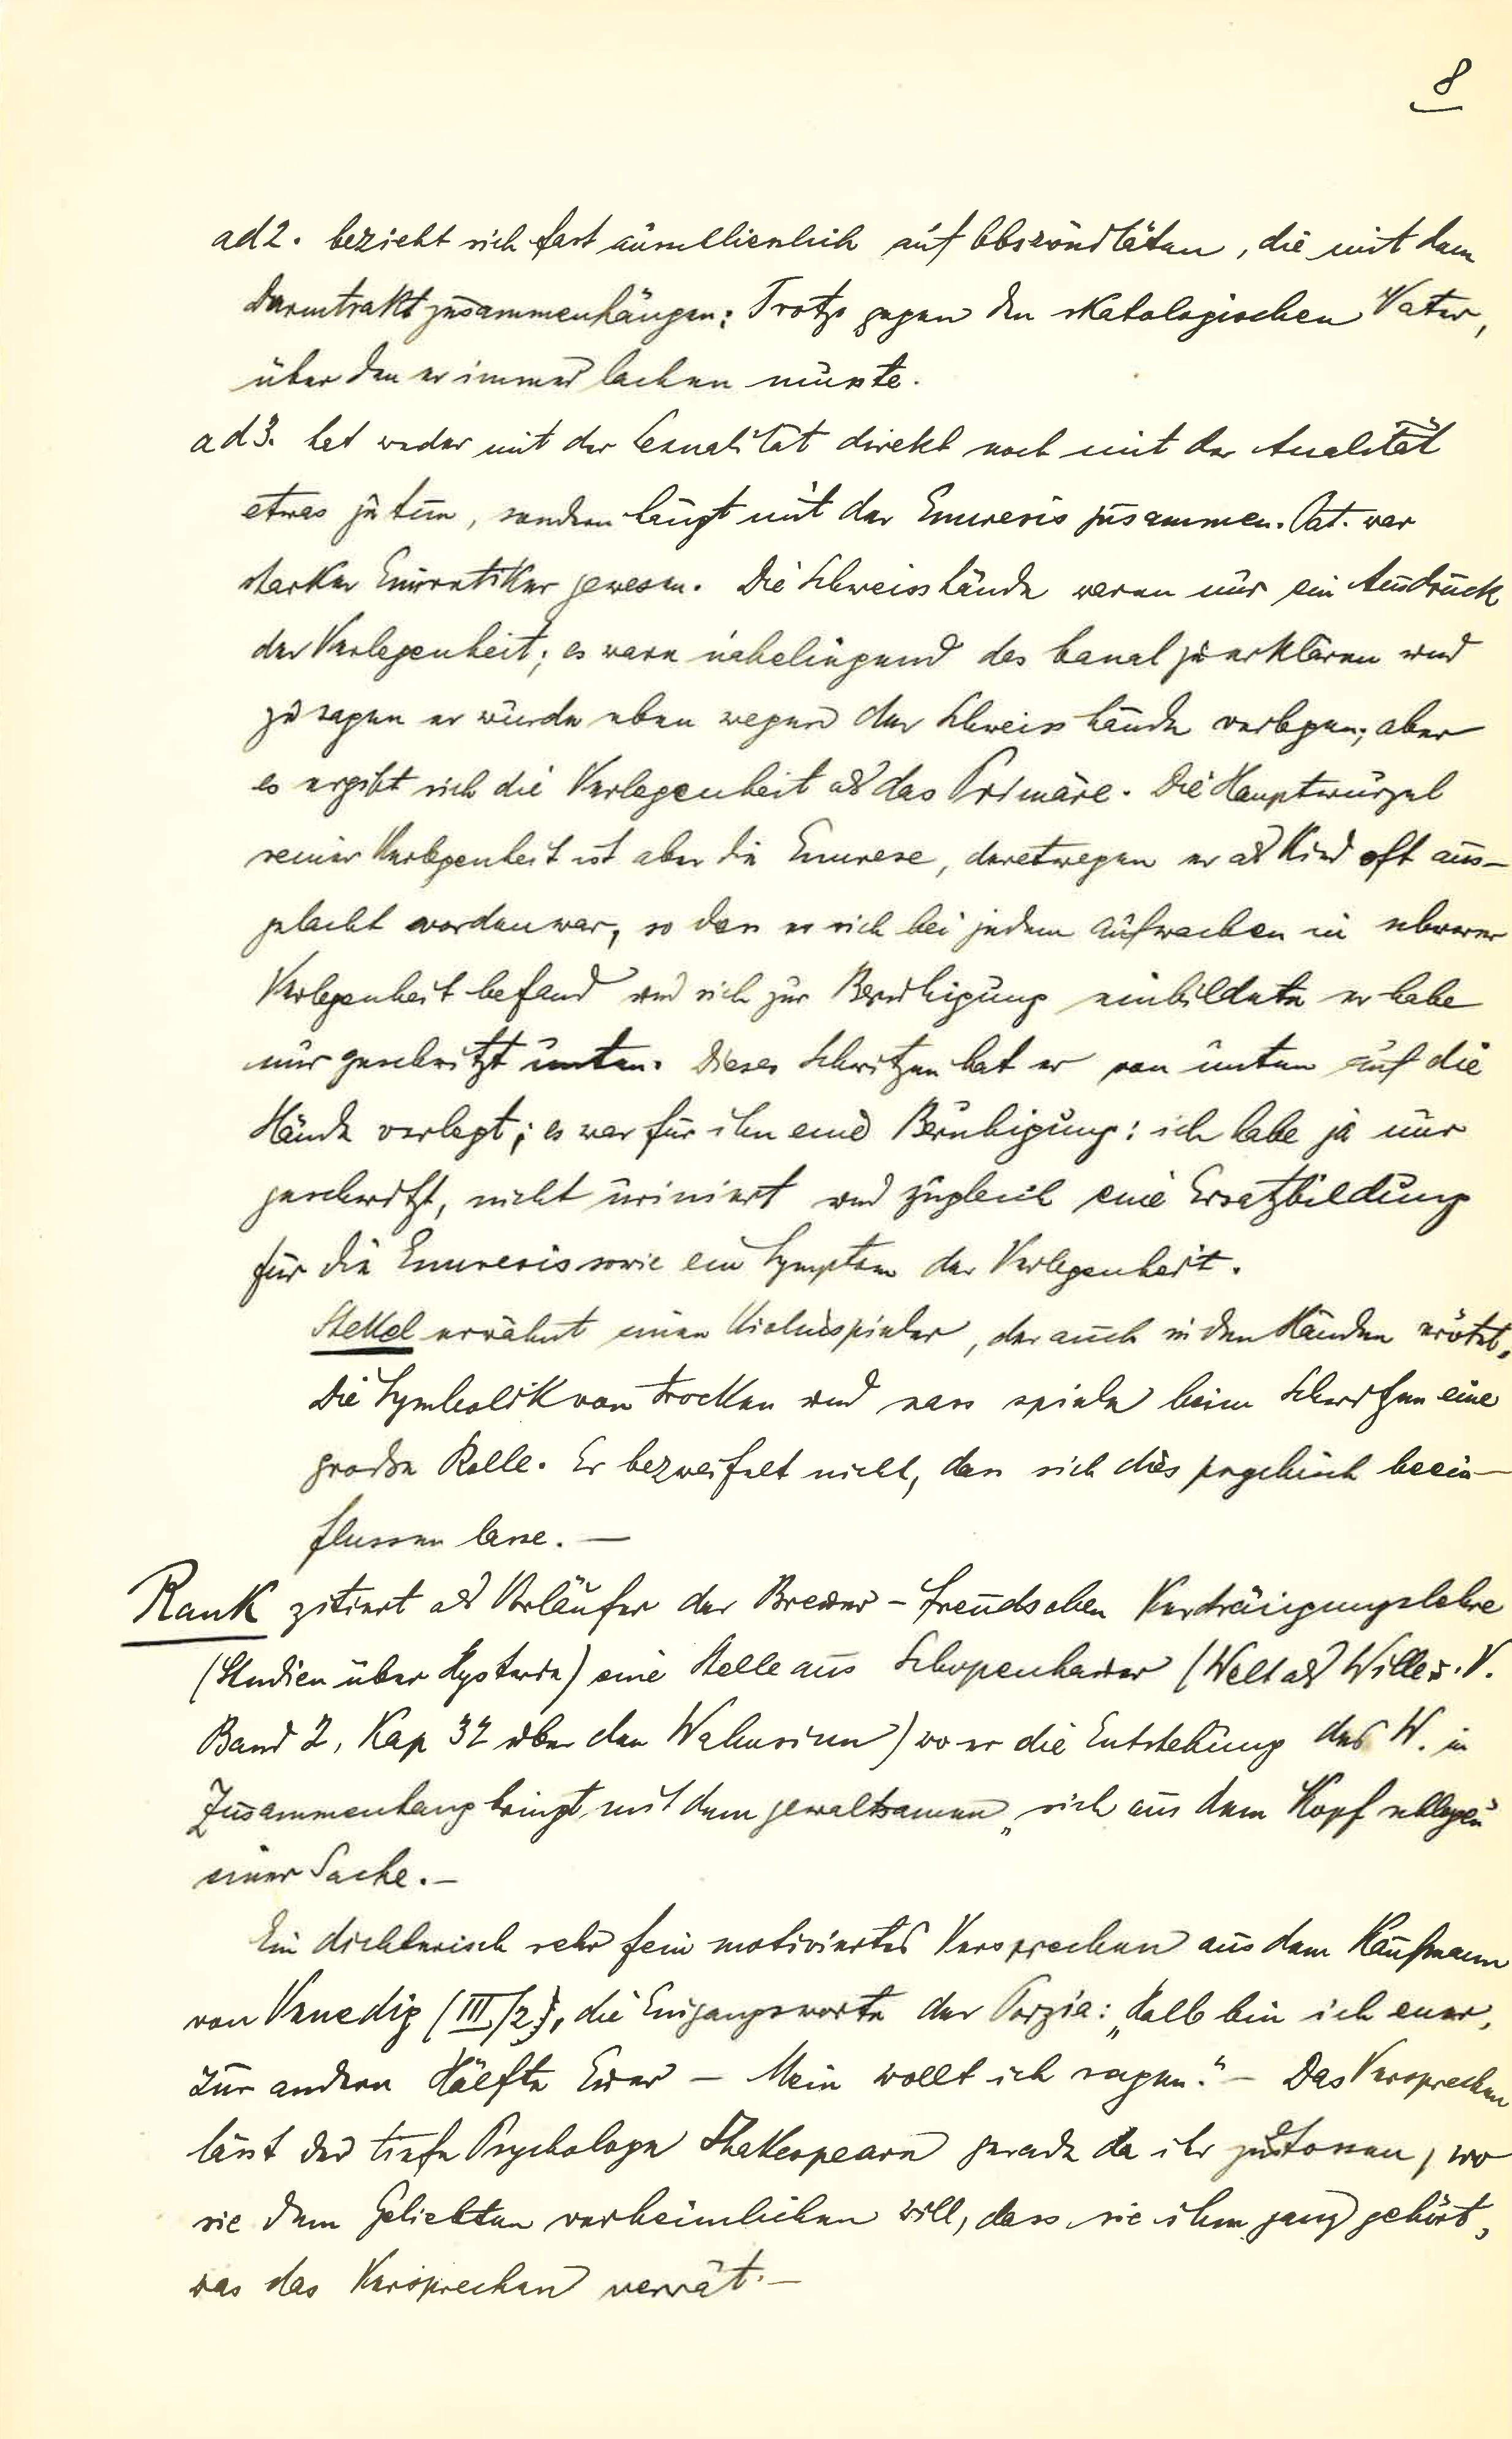 8
ad 2. bezieht sich fast ausschliesslich auf Obszönitäten, die mit dem
Darmtrakt zusammenhängen: Trotz gegen den skatologischen Vater,
über den er immer lachen musste.
ad 3. hat weder mit der Sexualität direkt noch mit der Analität
etwas zu tun, sondern hängt mit der Enuresis zusammen. Pat. war
starker Enuretiker gewesen. Die Schweisshände waren nur ein Ausdruck
der Verlegenheit; es wäre naheliegend das banal zu erklären und
zu sagen er würde eben wegen der Schweisshände verlegen; aber
es ergibt sich die Verlegenheit als das Primäre. Die Hauptwurzel
seiner Verlegenheit ist aber die Enurese, deretwegen er als Kind oft aus-
gelacht worden war, so dass er sich bei jedem Aufwachen in schwerer
Verlegenheit befand und sich zur Beruhigung einbildete er habe
nur geschwitzt unten. Dieses Schwitzen hat er von unten auf die
Hände verlegt; es war für ihn eine Beruhigung: ich habe ja nur
geschwitzt, nicht uriniert und zugleich eine Ersatzbildung
für die Enuresis sowie ein Symptom der Verlegenheit.
Stekel erwähnt einen Violinspieler, der auch in den Händen erötet.
Die Symbolik von trocken und nass spiele beim Schwitzen eine
große Rolle. Er bezweifelt nicht, dass sich dies psychisch beein-
flussen lasse. —
Rank zitiert als Vorläufer der Breuer-Freudschen Verdrängungslehre
(Studien über Hysterie) eine Stelle aus Schopenhauer (Welt als Wille u. V.
Band 2, Kap 32 über den Wahnsinn) wo er die Entstehung des W. in
Zusammenhang bringt mit dem gewaltsamen „sich aus dem Kopf schlagen"
einer Sache. —
Ein dichterisch sehr fein motiviertes Versprechen aus dem Kaufmann
von Venedig (III/2), die Eingangsworte der Porzia: „Halb bin ich euer,
zur andern Hälfte Euer — Mein wollt ich sagen." — Das Versprechen
lässt der tiefe Psychologe Shakespeare gerade da ihr zustossen, wo
sie dem Geliebten verheimlichen will, dass sie ihm ganz gehört,
was das Versprechen verrät. —